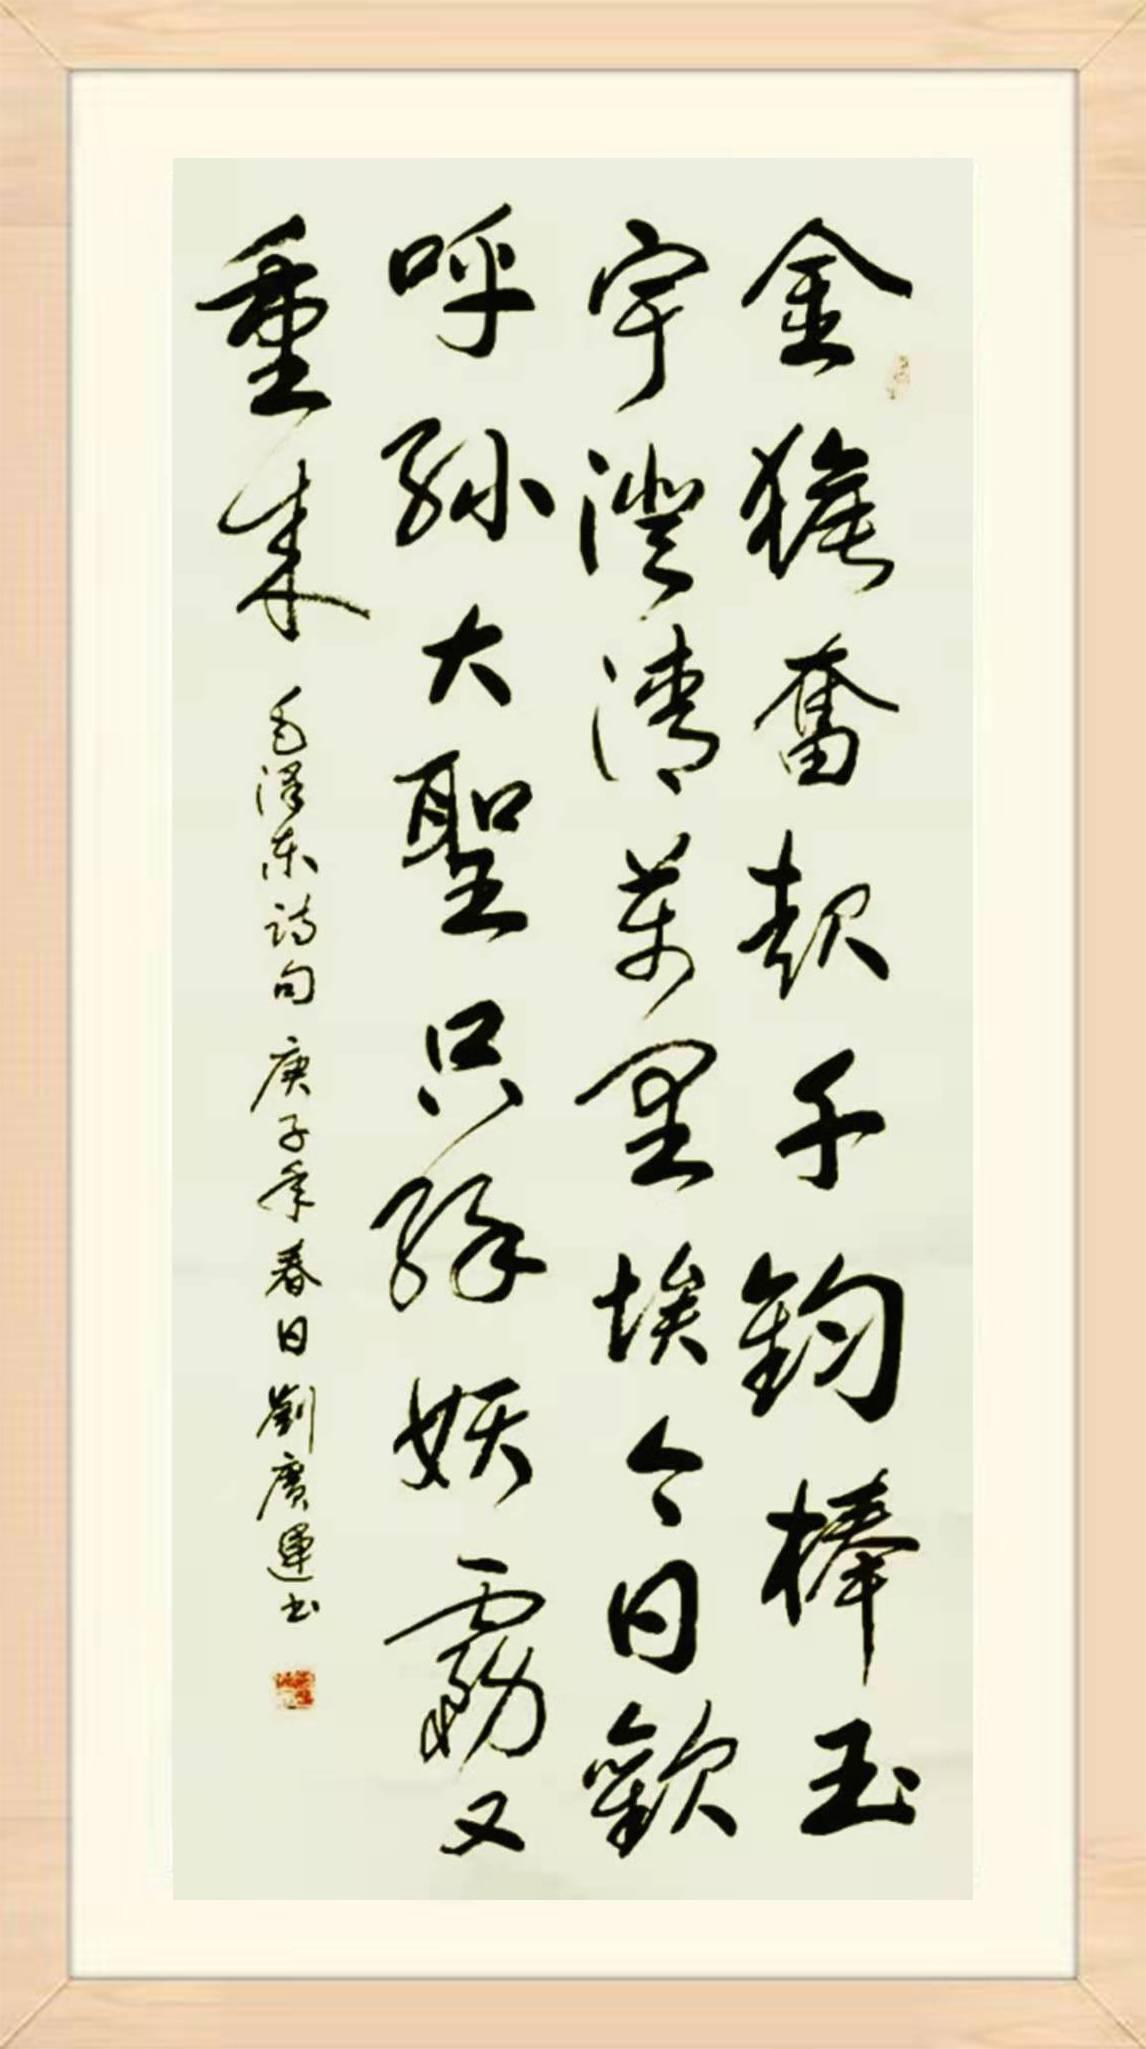 金猴奮起千鈞棒玉
宇澄清萬里埃今日歡
呼孫大聖只緣妖霧又
重来 毛泽东诗句 庚子年春日 劉廣運书